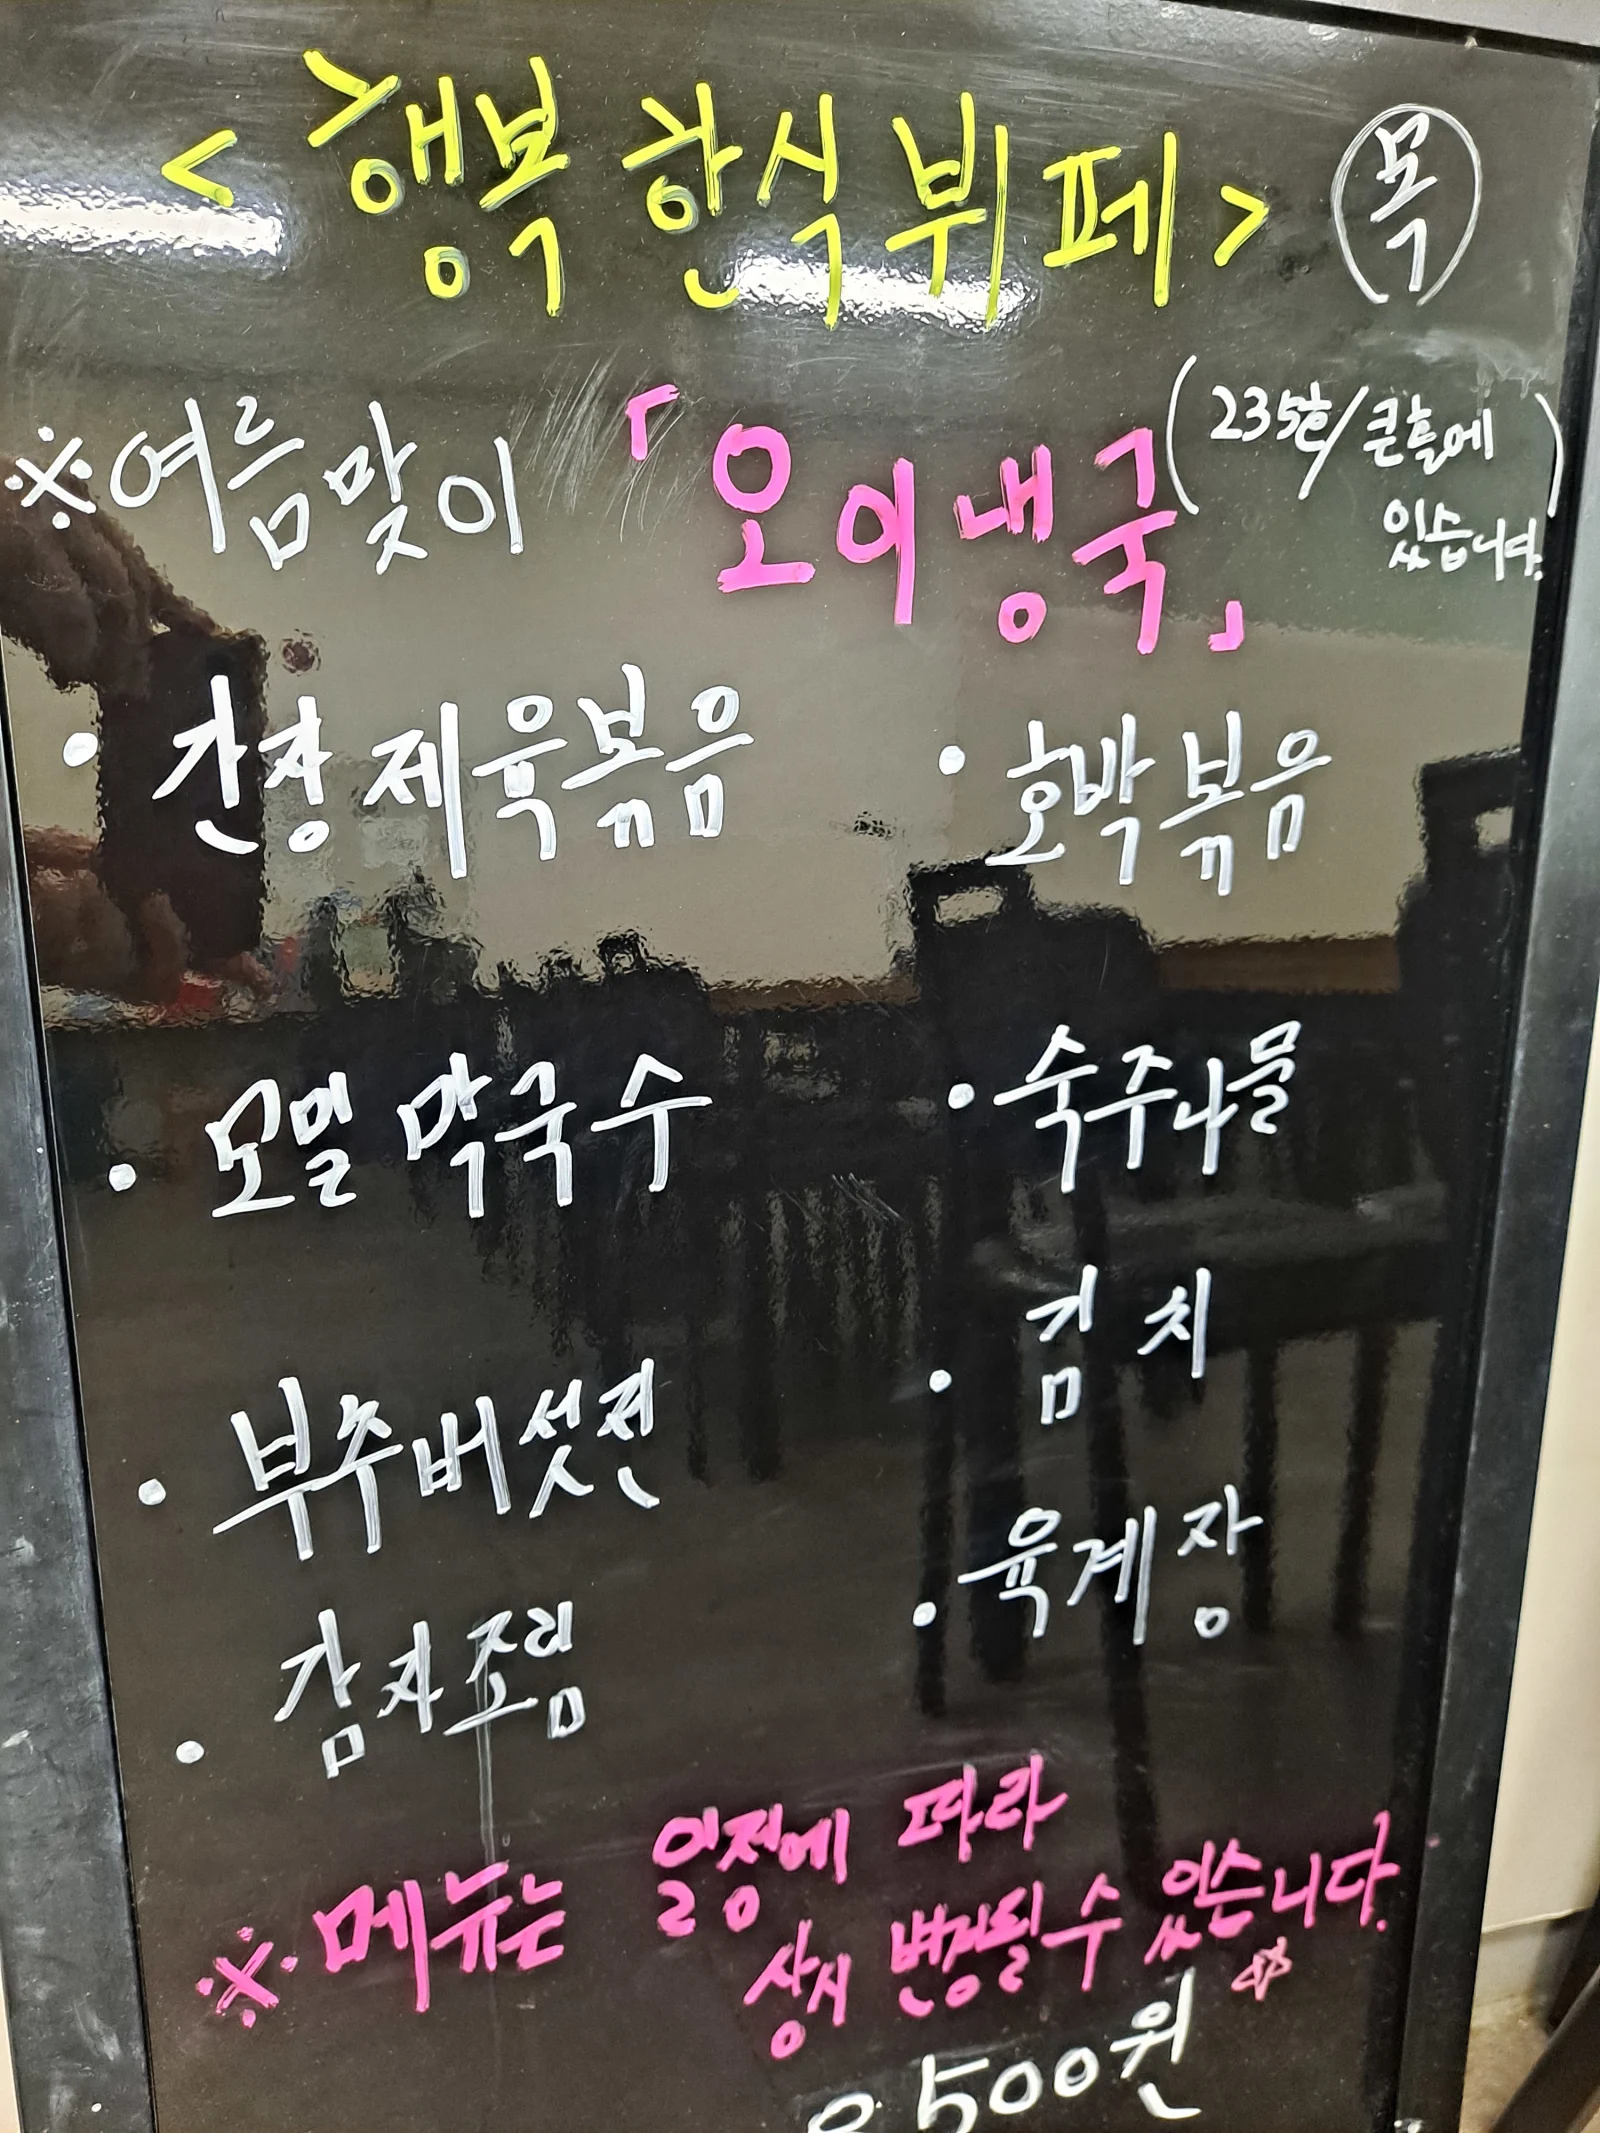 <행복 한식 뷔페> 목
※여름맞이 「오이냉국」 (235호/큰홀에 있습니다.)
• 간장제육볶음
• 호박볶음
• 모밀 막국수
• 숙주나물
• 김치
• 부추버섯전
• 육계장
• 감자조림
※메뉴는 일정에 따라
상시 변경될 수 있습니다.
500원